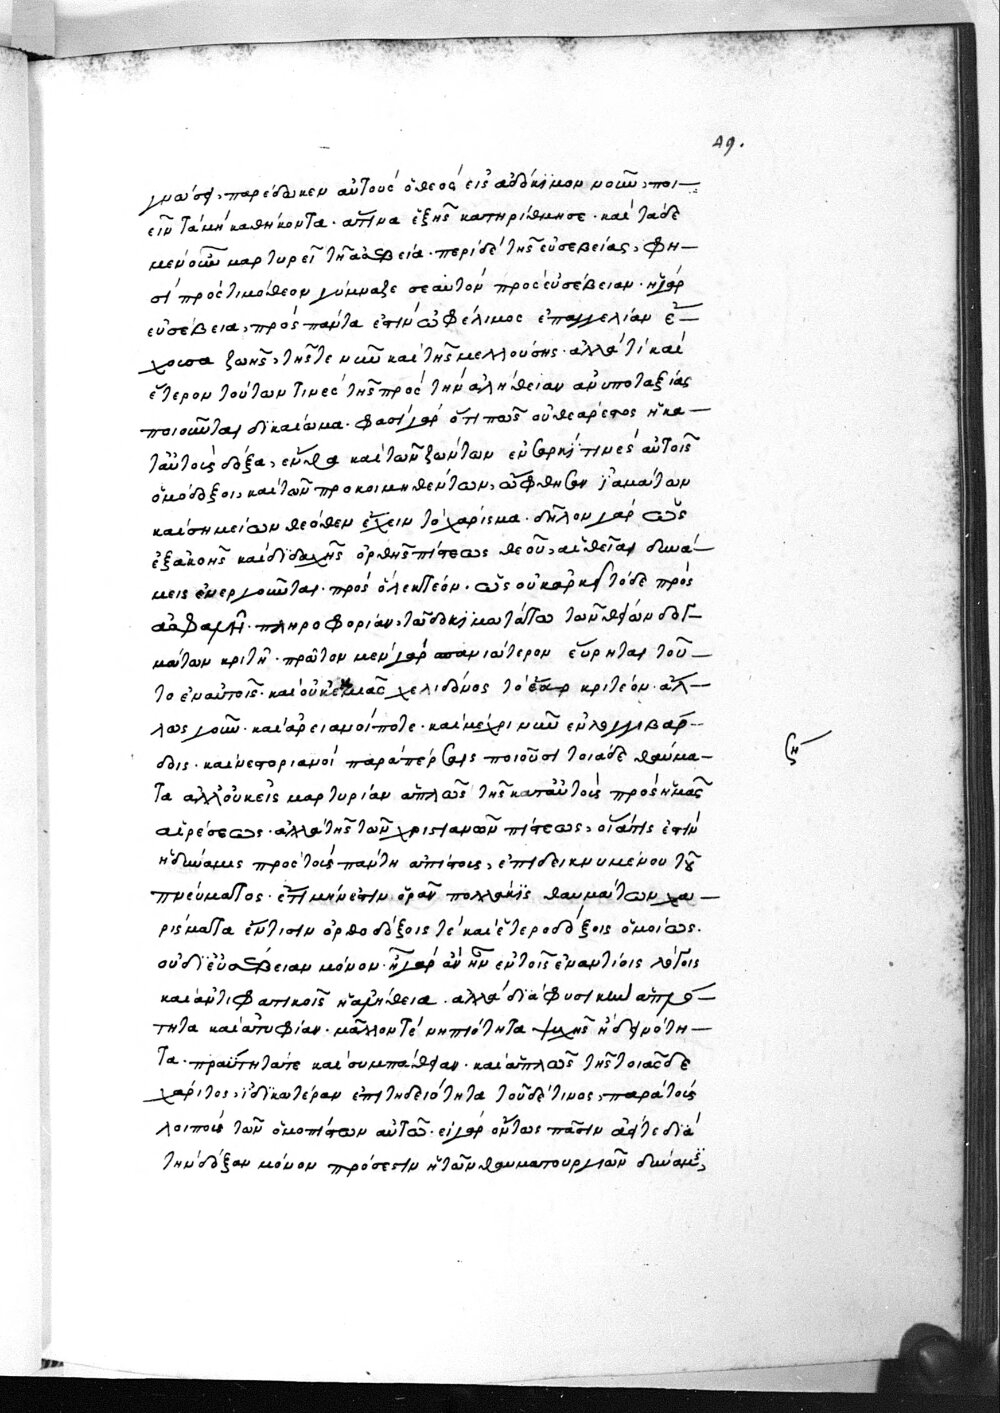 49.
γνῶσει, παρέδωκεν αὐτοὺς ὁ θεὸς εἰς ἀδόκιμον νοῦν, ποι-
εῖν τὰ μὴ καθήκοντα. ἅτινα ἑξῆς κατηρίθμησε. καὶ τάδε
μὲν οὖν μαρτυρεῖ τῇ ἀσεβεία. περὶ δὲ τῆς εὐσεβείας, φη-
σὶ πρὸς τιμόθεον γύμναζε σεαυτὸν πρὸς εὐσέβειαν. ἡ γὰρ
εὐσέβεια, πρὸς πάντα ἐστὶν ὠφέλιμος ἐπαγγελίαν ἔ-
χουσα ζωῆς, τῆς τε νῦν καὶ τῆς μελλούσης. ἀλλά τι καὶ
ἕτερον τούτων τινὲς τῆς πρὸς τὴν ἀλήθειαν ἀνυποταξίας
ποιοῦνται δικαίωμα. φασὶ γὰρ ὅτι πῶς οὐ θεάρεστος ἡ κα-
τ' αὐτοὺς δόξα, ἔνθα καὶ τῶν ζώντων ἐν σαρκί τινες αὐτοῖς
ὁμόδοξοι, καὶ τῶν προκοιμηθέντων, ὤφθησαν ἰαμάτων
καὶ σημείων θεόθεν ἔχειν τὸ χάρισμα. δῆλον γὰρ ὡς
ἐξ ἀκοῆς καὶ διδαχῆς ὀρθῆς πίστεως θεοῦ, αἱ θεῖαι δυνά-
μεις ἐνεργοῦνται. πρὸς ὃ λεκτέον. ὡς οὐκ ἀρκεῖ τόδε πρὸς
ἀσφαλῆ πληροφορίαν, τῷ δοκιμαστῇ τῶν θείων δογ-
μάτων κριτῇ. πρῶτον μὲν γὰρ σπανιώτερον εὕρηται τοῦ-
το ἐν αὐτοῖς. καὶ οὐκ ἐκ μιᾶς χελιδόνος τὸ ἔαρ κριτέον. ἄλ-
λως γοῦν. καὶ ἀρειανοί ποτε. καὶ μέχρι νῦν ἐν λογγιβάρ-
δοις. καὶ νεστοριανοὶ παρὰ πέρσαις ποιοῦσι τοιάδε θαύμα-
τα ἀλλ' οὐκ εἰς μαρτυρίαν ἁπλῶς τῆς κατ' αὐτοὺς πρὸς ἡμᾶς
αἱρέσεως. ἀλλὰ τῆς τῶν χριστιανῶν πίστεως, οἵα τίς ἐστιν
ἡ δύναμις πρὸς τοὺς πάντη ἀπίστους, ἐπιδεικνυμένου τοῦ
πνεύματος. ἔτι μὴν ἔστιν ὁρᾶν πολλάκις θαυμάτων χα-
ρίσματα ἔν τισιν ὀρθοδόξοις τὲ καὶ ἑτεροδόξοις ὁμοίως.
οὐ δι' εὐσέβειαν μόνον. ἦ γὰρ ἂν ἦν ἐν τοῖς ἐναντίοις λόγοις
καὶ ἀντιφατικοῖς ἡ ἀλήθεια. ἀλλὰ διὰ φυσικὴν ἁπλό-
τητα καὶ ἀτυφίαν. μᾶλλον τὲ νηπιότητα ψυχῆς ἢ δριμύτη-
τα. πραότητά τε καὶ συμπάθειαν. καὶ ἁπλῶς τῆς τοιᾶσδε
χάριτος, ἰδικωτέραν ἐπιτηδειότητα τοῦδέ τινος, παρὰ τοὺς
λοιποὺς τῶν ὁμοπίστων αὐτῷ. εἰ γὰρ ὄντως πᾶσιν ἅτε διὰ
τὴν δόξαν μόνον πρόσεστιν ἡ τῶν θαυματουργιῶν δύναμις,